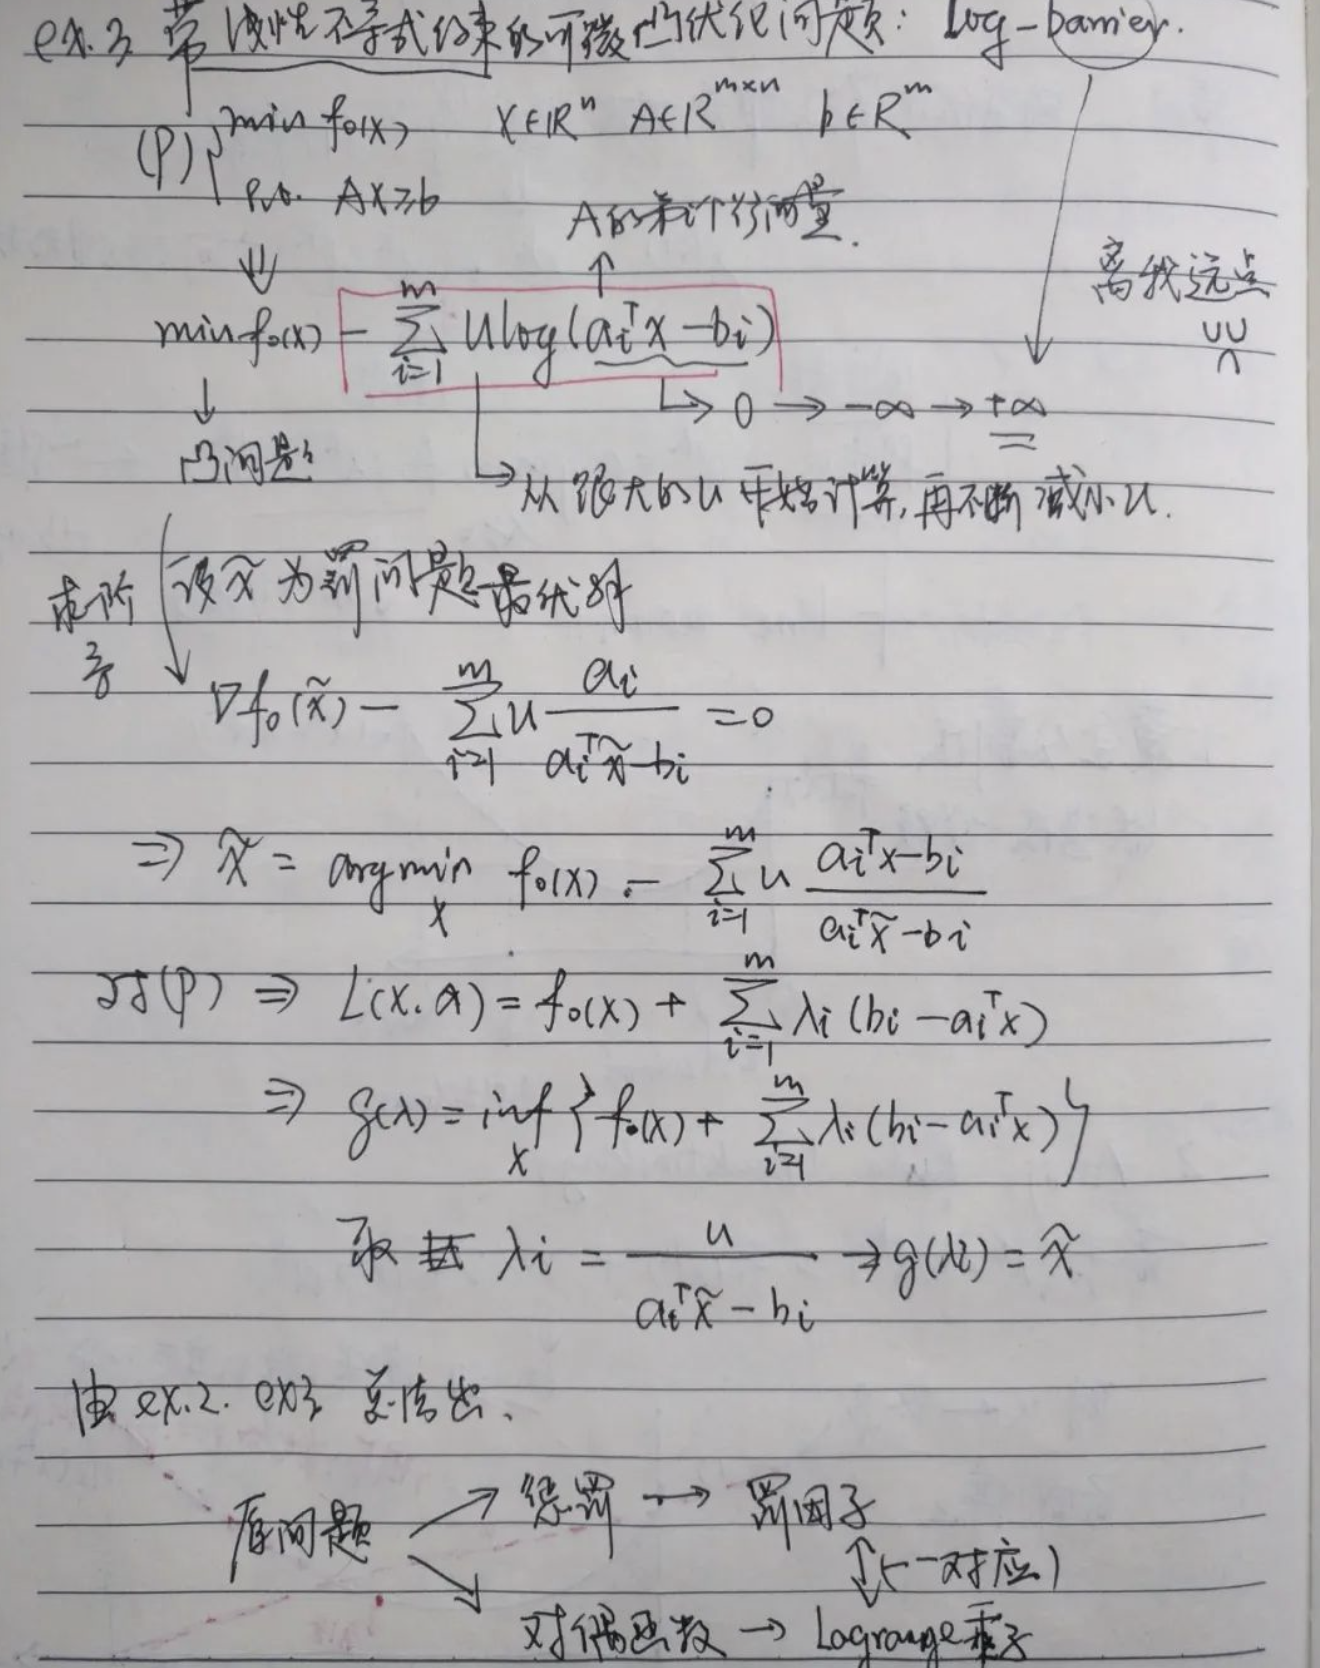 ex.3 带线性不等式约束的可微凸优化问题: log-barrier.
(P) { min f₀(x) x∈ℝⁿ A∈ℝᵐˣⁿ b∈ℝᵐ
s.t. Ax≥b
A的第i个行向量.
⇓
离我远点
min f₀(x) - ∑ᵢ₌₁ᵐ u log(aᵢᵀx - bᵢ)
↳ 0 → -∞ → +∞
↓
凸问题
↳ 从很大的u开始计算,再不断减小u.
求一阶导
设x̃为罚问题最优解
∇f₀(x̃) - ∑ᵢ₌₁ᵐ u aᵢ/(aᵢᵀx̃ - bᵢ) = 0
⇒ x̃ = argminₓ f₀(x) - ∑ᵢ₌₁ᵐ u (aᵢᵀx - bᵢ)/(aᵢᵀx̃ - bᵢ)
对(P) ⇒ L(x.α) = f₀(x) + ∑ᵢ₌₁ᵐ λᵢ(bᵢ - aᵢᵀx)
⇒ g(λ) = infₓ { f₀(x) + ∑ᵢ₌₁ᵐ λᵢ(bᵢ - aᵢᵀx) }
取 λᵢ = u/(aᵢᵀx̃ - bᵢ) ⇒ g(λᵢ) = x̃
由 ex.2. ex3 总结出.
原问题 → 惩罚 → 罚因子
↕(一一对应)
→ 对偶函数 → Lagrange乘子